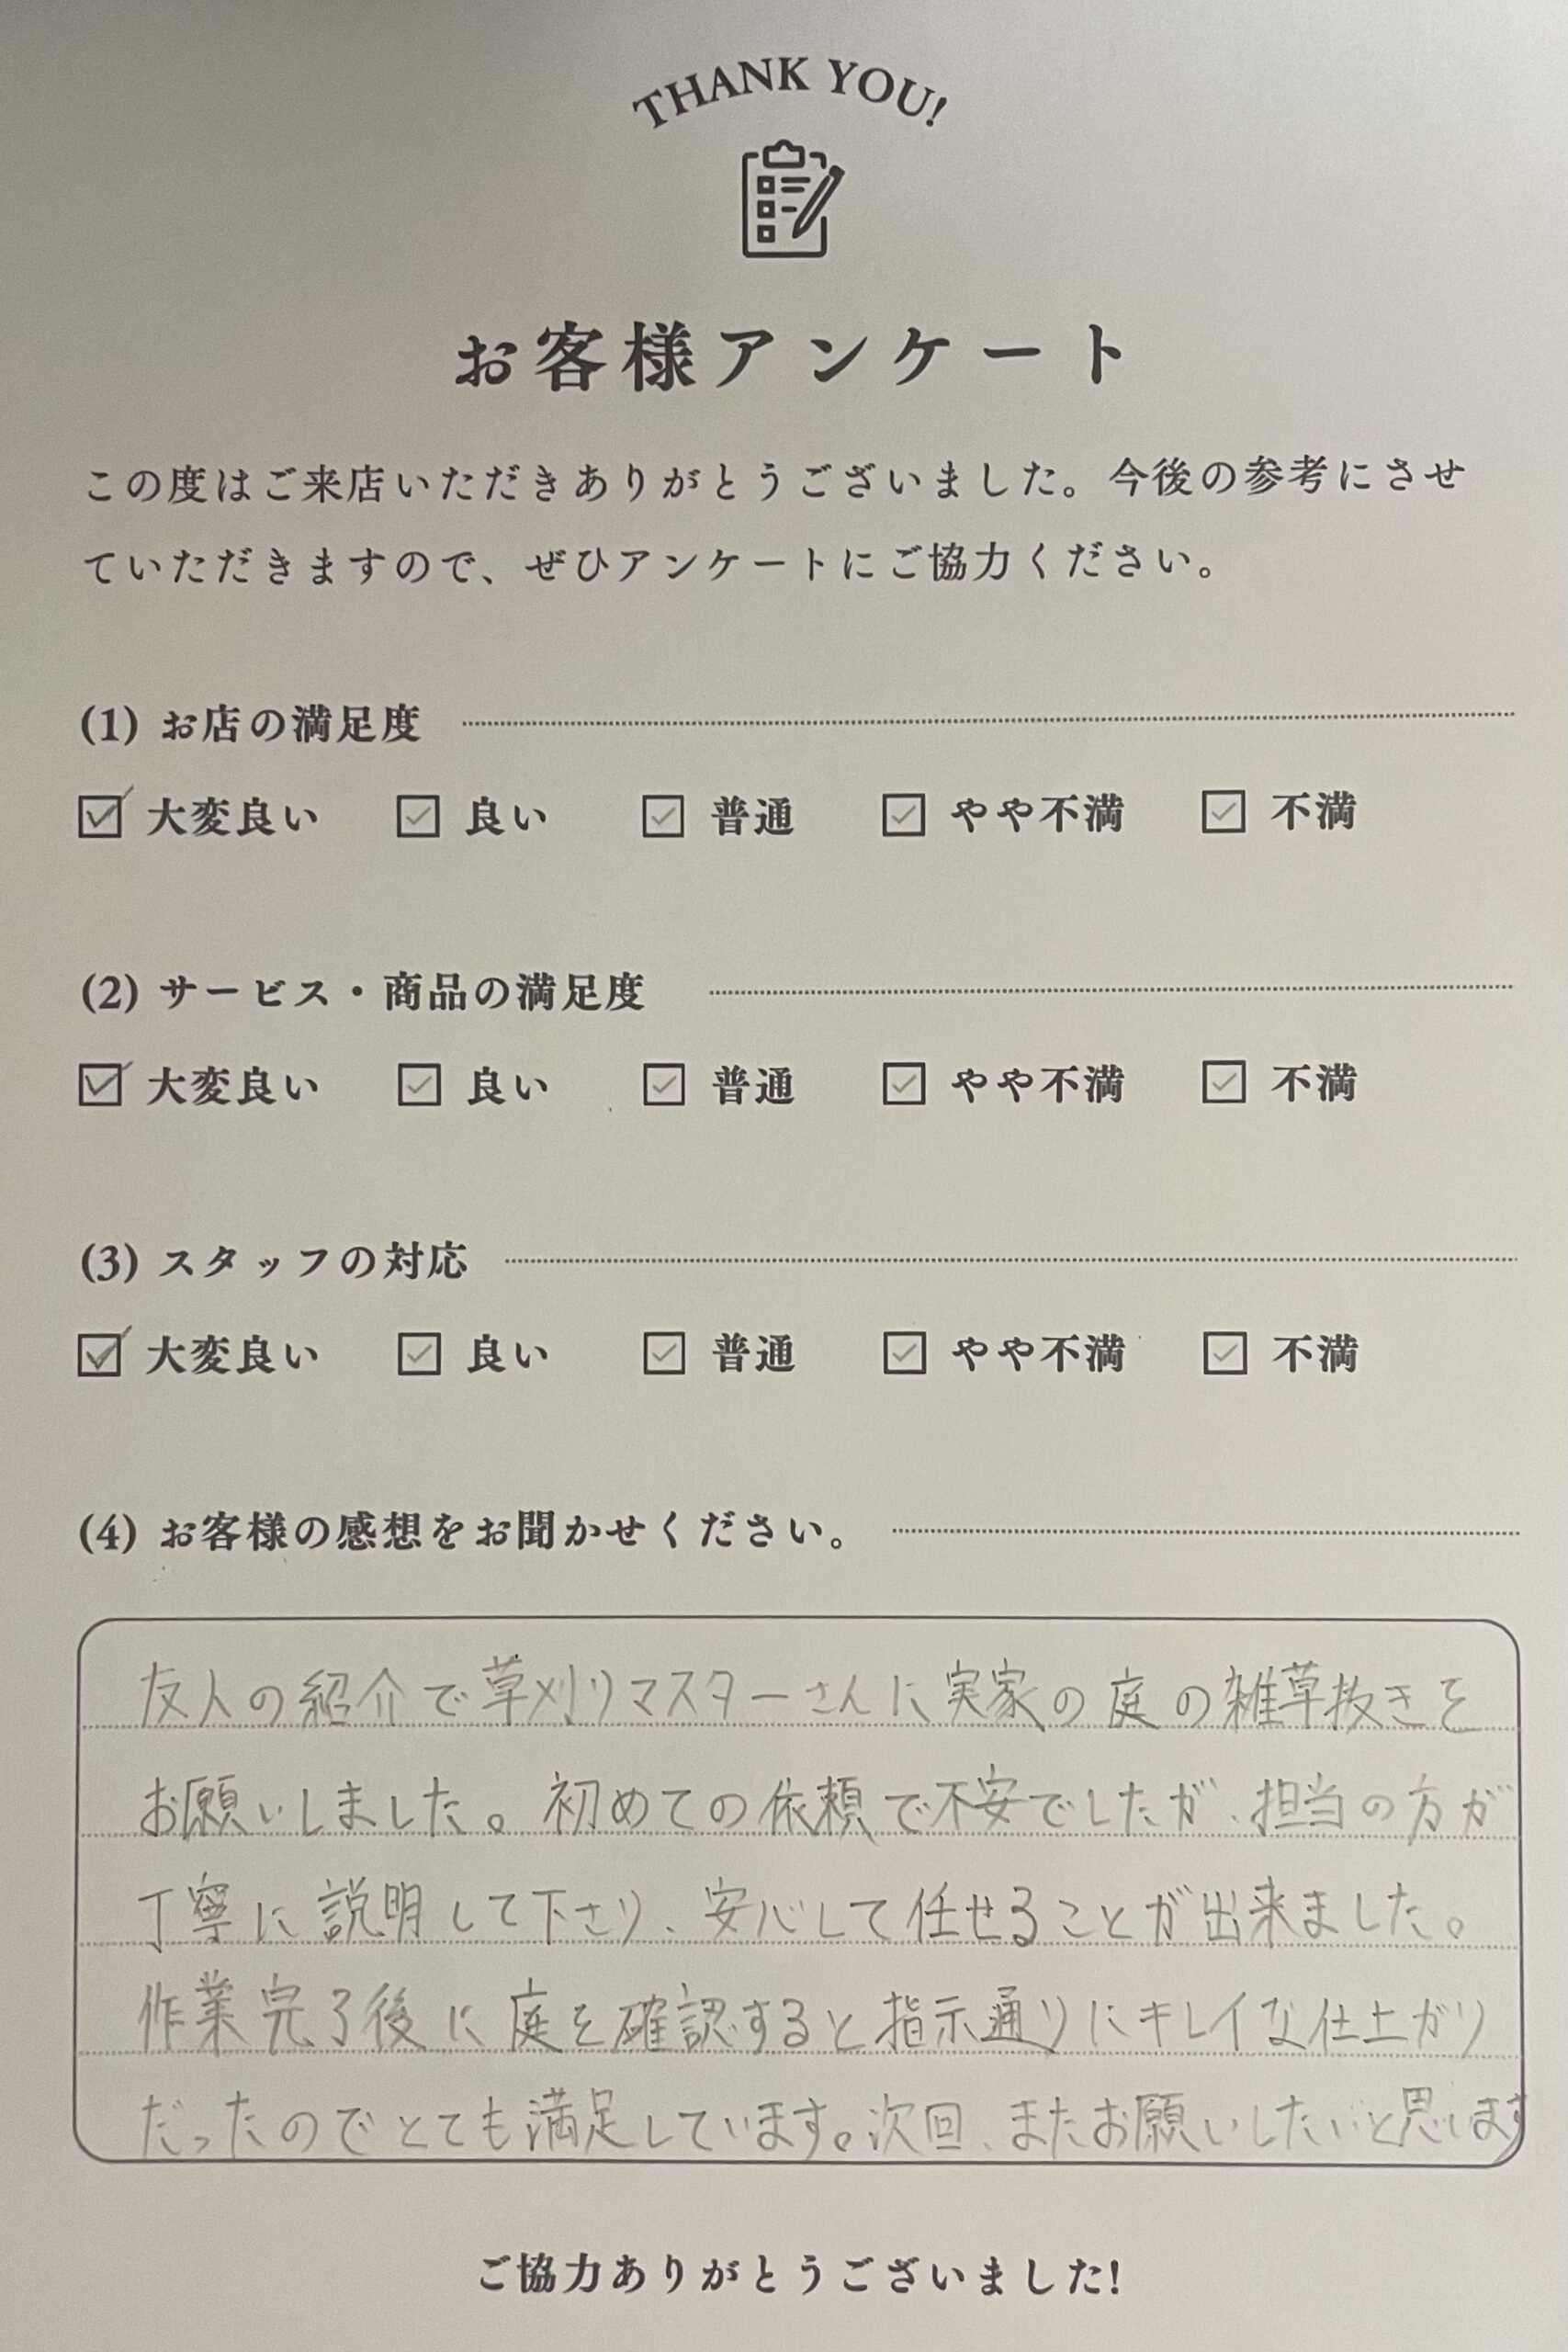 THANK YOU!
お客様アンケート
この度はご来店いただきありがとうございました。今後の参考にさせ
ていただきますので、ぜひアンケートにご協力ください。
(1) お店の満足度
大変良い 良い 普通 やや不満 不満
(2) サービス・商品の満足度
大変良い 良い 普通 やや不満 不満
(3) スタッフの対応
大変良い 良い 普通 やや不満 不満
(4) お客様の感想をお聞かせください。
友人の紹介で草刈りマスターさんに実家の庭の雑草抜きを
お願いしました。初めての依頼で不安でしたが、担当の方が
丁寧に説明して下さり、安心して任せることが出来ました。
作業完了後に庭を確認すると指示通りにキレイな仕上がり
だったのでとても満足しています。次回、またお願いしたいと思います
ご協力ありがとうございました!